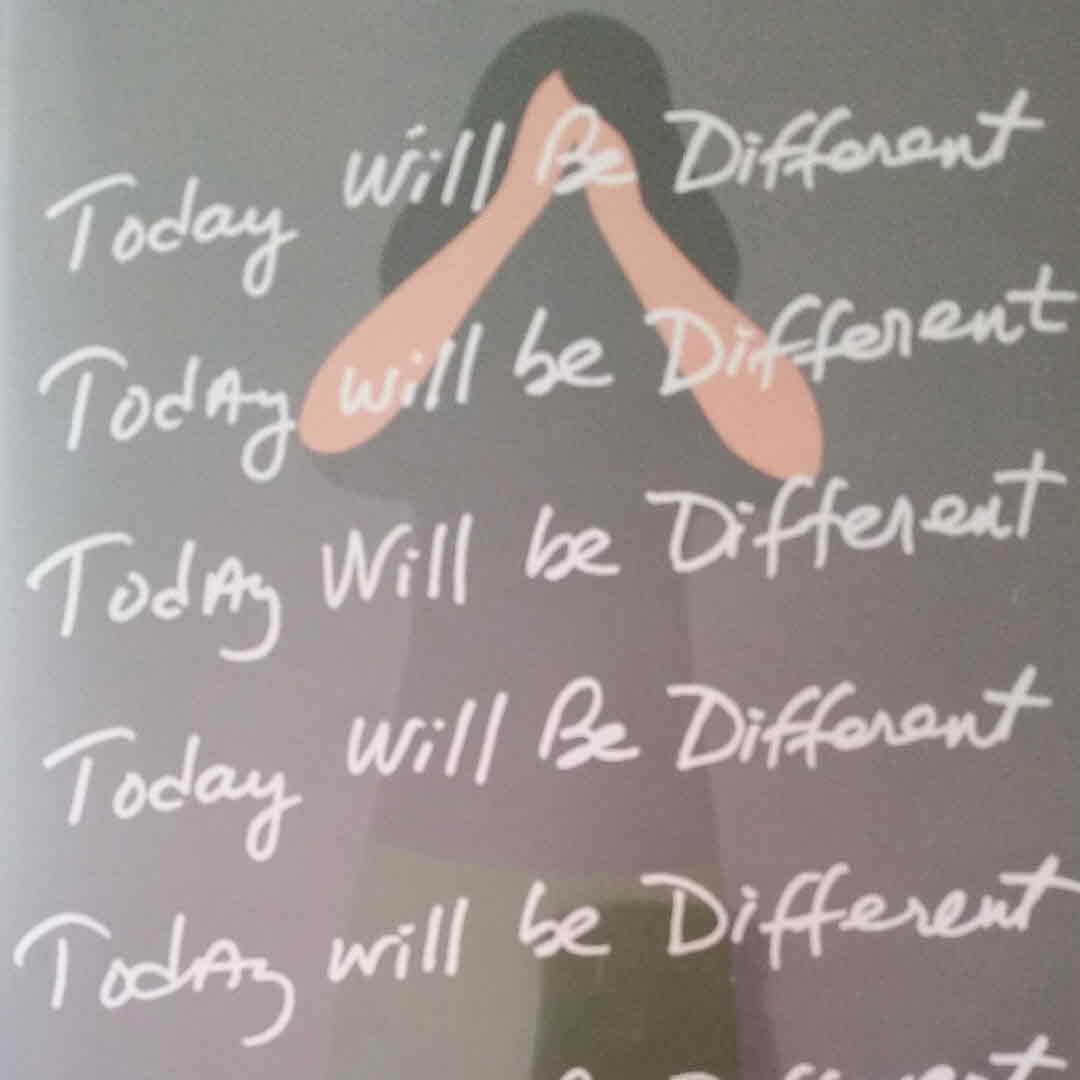 Today Will Be Different
TodAy will be Different
TodAy Will be Different
Today Will Be Different
TodAy will be Different
Different